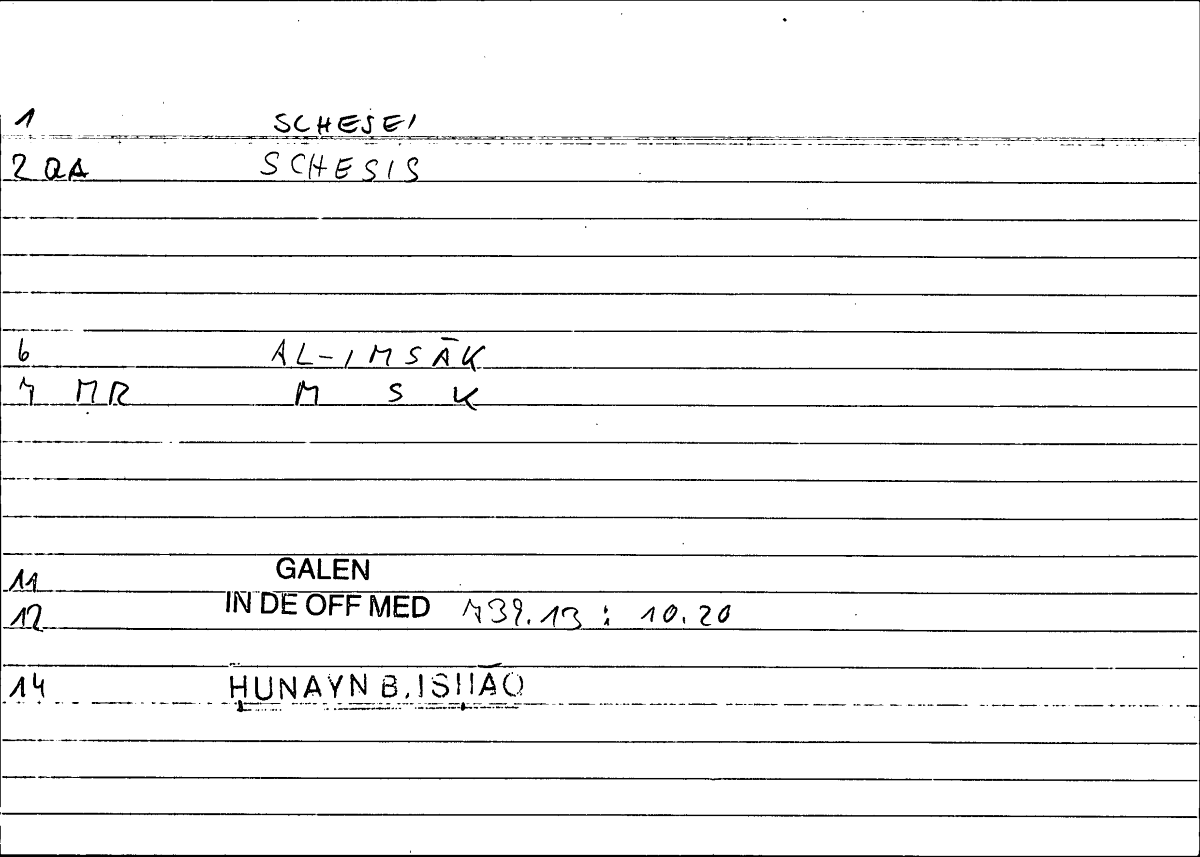 1 SCHESEI
2 QA SCHESIS
6 AL-IMSĀK
7 MR M S K
11 GALEN
12 IN DE OFF MED 739.13 : 10.20
14 ḤUNAYN B. ISḤĀQ